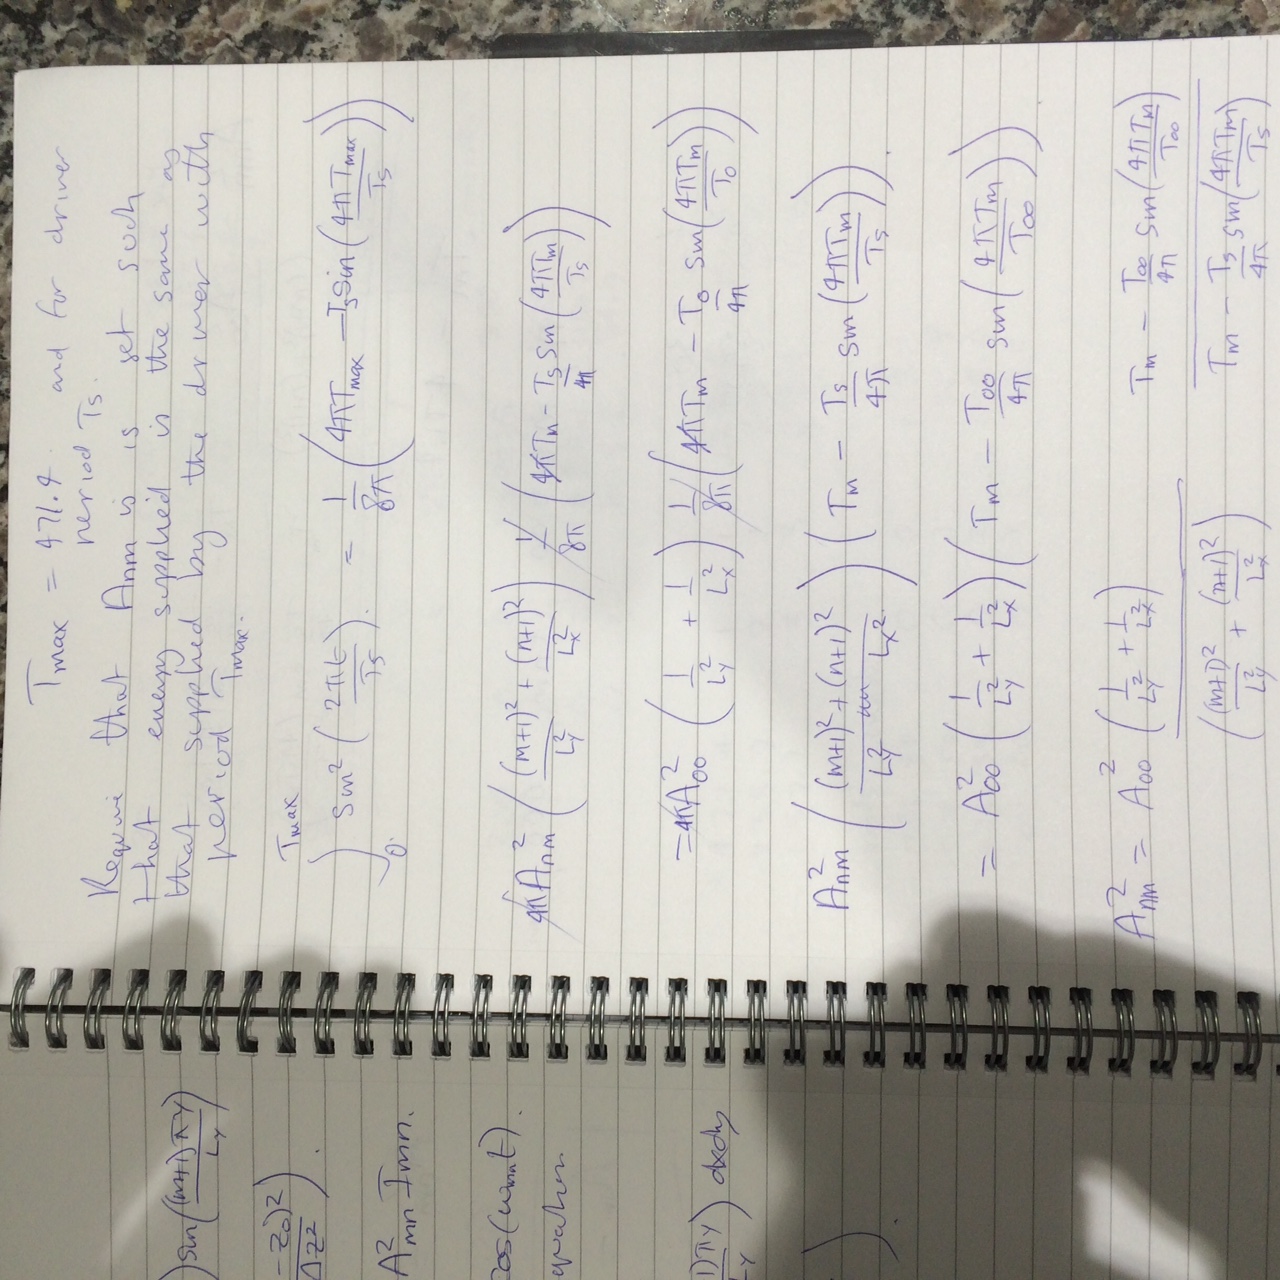 ) sin((m+1)πY/L_Y)
- Z₀)²/ΔZ²).
A²mn Imn.
cos(ωmnt).
equation
1)πY/L_Y) dxdy
).
Tmax = 471.4. and for driver
period Ts.
Require that Anm is is set such
that energy supplied is the same as
that supplied by the driver with
period Tmax.
∫₀^Tmax sin²(2πt/Ts). = 1/8π (4πTmax – Ts sin(4πTmax/Ts))
4πAnm² ((m+1)²/L_Y² + (n+1)²/L_X²) 1/8π (4πTm – Ts/4π sin(4πTm/Ts))
= 4πA₀₀² (1/L_Y² + 1/L_X²) 1/8π (4πTm – T₀/4π sin(4πTm/T₀))
Anm² ((m+1)² + (n+1)²/L_Y² L_X²) (Tm – Ts/4π sin(4πTm/Ts)).
= A₀₀² (1/L_Y² + 1/L_X²) (Tm – T₀₀/4π sin(4πTm/T₀₀)).
Anm² = A₀₀² (1/L_Y² + 1/L_X²) / ((m+1)²/L_Y² + (n+1)²/L_X²) Tm – T₀₀/4π sin(4πTm/T₀₀) / Tm – Ts/4π sin(4πTm/Ts)